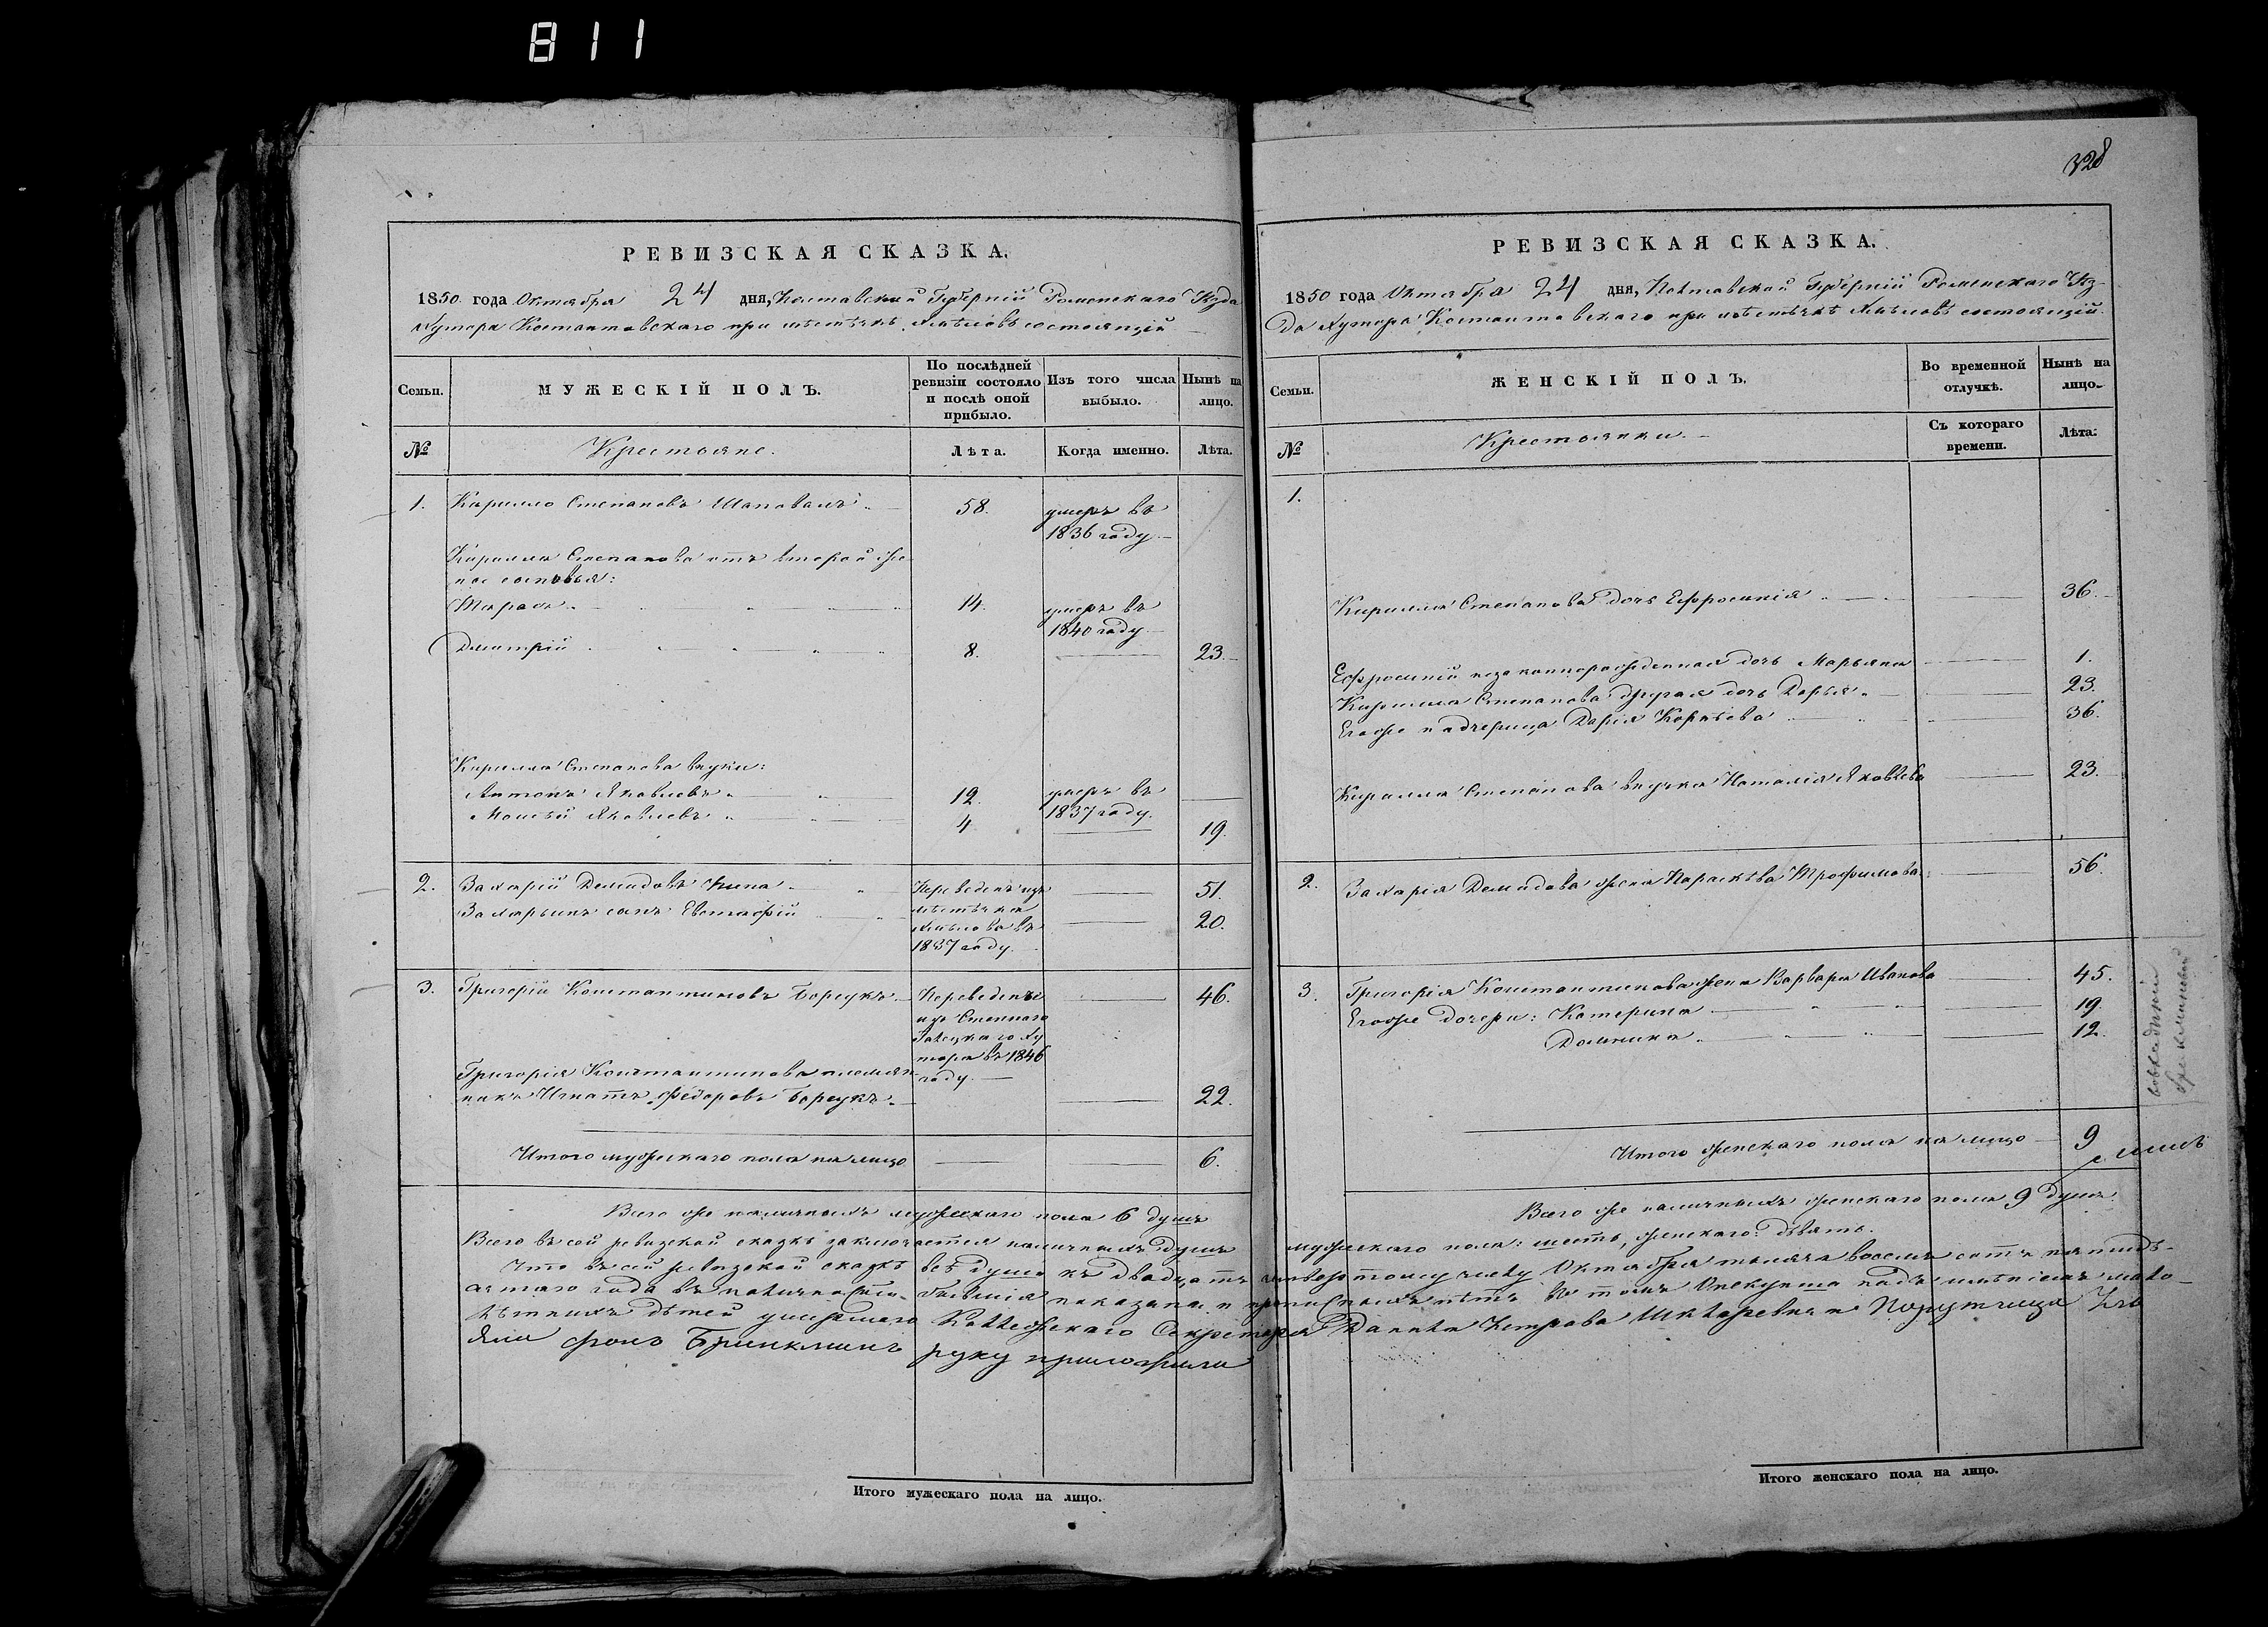 811
РЕВИЗСКАЯ СКАЗКА.
1850 года Октября 24 дня, Полтавской Губерніи Роменскаго Уѣзда
Хутора Константовскаго при мѣстечкѣ состоящій
Семьи.
МУЖЕСКІЙ ПОЛЪ.
По послѣдней ревизіи состояло и послѣ оной прибыло.
Изъ того числа выбыло.
Нынѣ на лицо.
№
Крестьяне.
Лѣта.
Когда именно.
Лѣта.
1. Кирилло Степановъ Шаповалъ 58. умеръ въ
1836 году.
Кирилла Степанова отъ второй же
ны сыновья:
Тарасъ 14. умеръ въ
1840 году
Дмитрій 8. 23.
Кирилла Степанова внуки:
Антонъ Яковлевъ 12. умеръ въ
1837 году.
Моисѣй Яковлевъ 4 19.
2. Захарій Демидовъ Переведенъ изъ 51.
Захарьинъ сынъ Евстафій мѣстечка 20.
въ
1837 году.
3. Григорій Константиновъ Борсукъ Переведены 46.
изъ Степнаго
Ху
тора въ 1846
Григорія Константинова племян году.
никъ Игнатъ Федоровъ Борсукъ 22.
Итого мужескаго пола на лицо 6.
Всего же наличныхъ мужескаго пола 6 душъ
Итого мужескаго пола на лицо.
328
РЕВИЗСКАЯ СКАЗКА.
1850 года Октября 24 дня, Полтавской Губерніи Роменскаго Уѣз-
да Хутора Константовскаго при мѣстечкѣ состоящій.
Семьи.
ЖЕНСКІЙ ПОЛЪ.
Во временной отлучкѣ.
Нынѣ на лицо.
№
Крестьянки.
Съ котораго времени.
Лѣта.
1.
Кирилла Степанова дочь Ефросинія 36.
Ефросиніи незаконнорожденная дочь Марьяна 1.
Кирилла Степанова другая дочь Дарья 23.
Егоже падчерица Дарія 36.
Кирилла Степанова внучка Наталія Яковлева 23.
2. Захарія Демидова жена Параскѣва Трофимова 56.
3. Григорія Константинова жена Варвара Иванова 45.
Егоже дочери: Катерина 19.
Домникія 12.
Итого женскаго пола на лицо 9
Всего же наличныхъ женскаго пола 9 душъ
Всего въ сей ревизской сказкѣ заключается наличныхъ душъ мужескаго пола: шесть, женскаго: девять.
Что въ сей ревизской сказкѣ всѣ души къ двадцать четвертому числу Октября тысяча восемь сотъ пятидѣ-
сятаго года въ наличности показаны и прописныхъ нѣтъ въ томъ Опекунша надъ имѣніемъ мало-
лѣтнихъ дѣтей умершаго Коллежскаго Секретаря Поручица
фонъ Бринкманъ руку приложила
Итого женскаго пола на лицо.